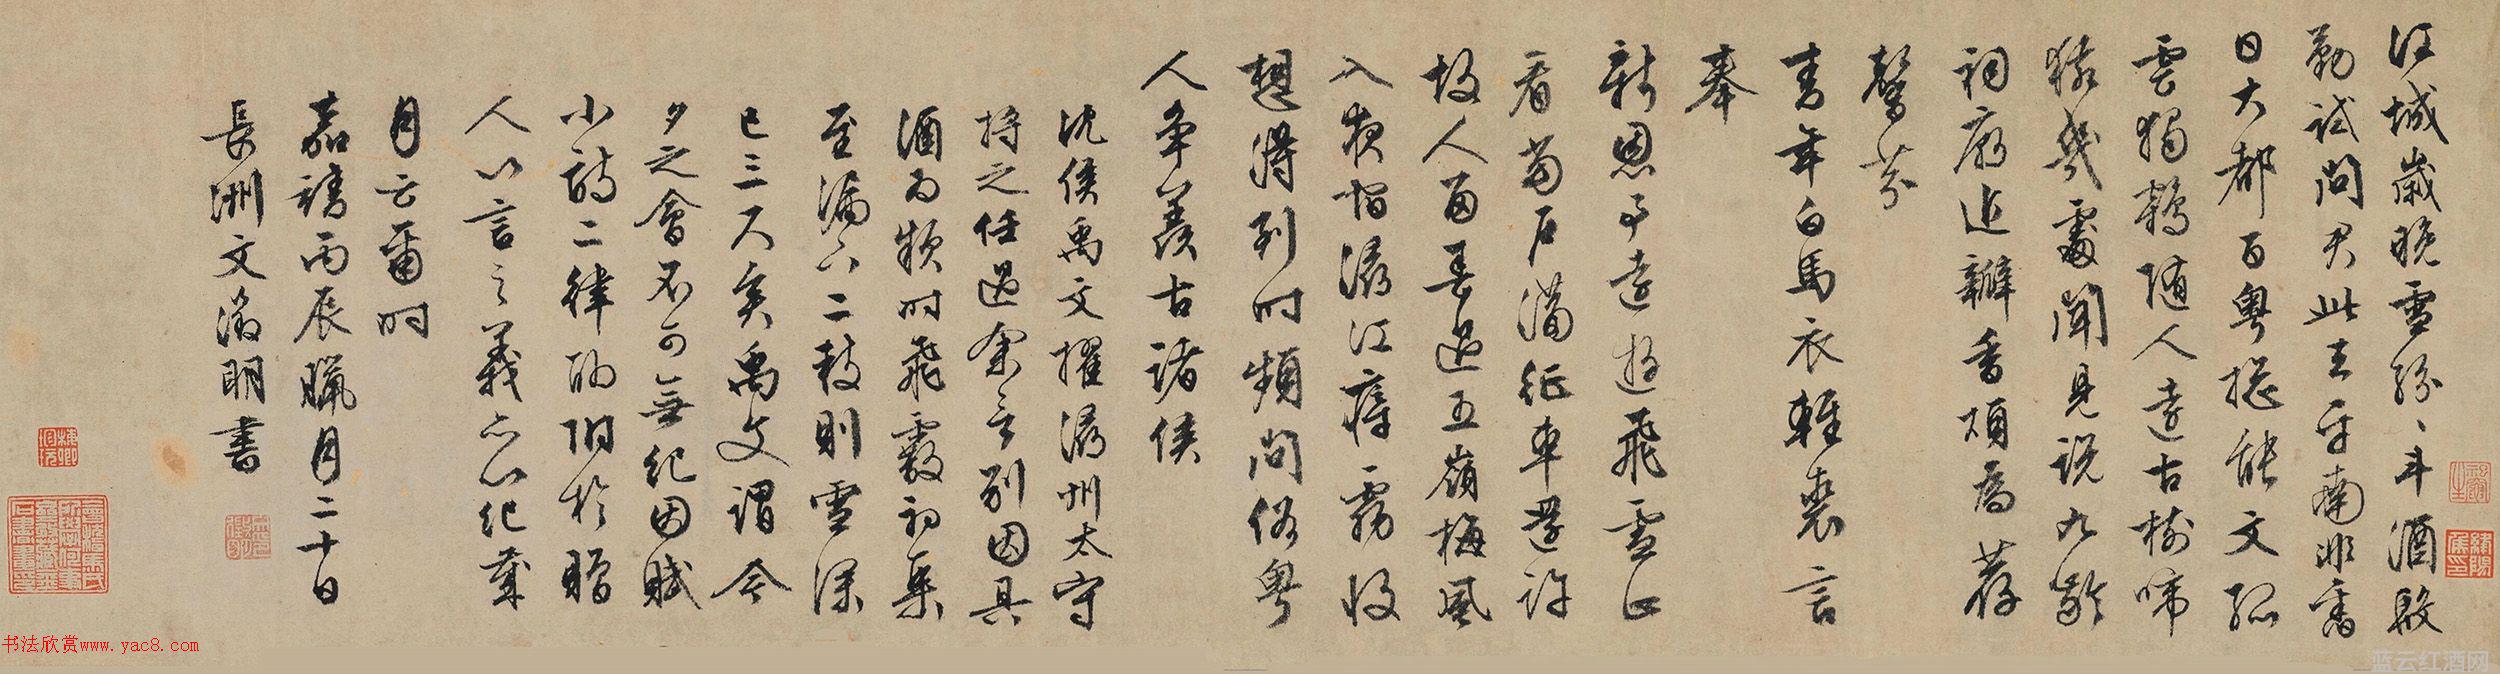 江城歲晚雪紛々斗酒殷
勤試問君此去平南非舊
日大都百粵總能文孤
雲獨鶴隨人遠古樹啼
猿幾處聞見說九嶷
祠廟近瓣香煩為荐
馨芬
青年白馬衣輕裘言
奉
新恩事遠遊飛雪正
看當戶滿征車還許
故人留春過五嶺梅風
入夜宿潯江瘴霧收
想得到時頻問俗粵
人爭羨古諸侯
沈侯禹文擢潯州太守
將之任過余言別因具
酒為款時飛霰初集
至漏下二鼓則雪深
已三尺矣禹文謂今
夕之會不可無紀因賦
小詩二律而附於贈
人以言之義亦以紀歲
月云爾時
嘉靖丙辰臘月二十日
長洲文徵明書
书法欣赏www.yac8.com
蓝云红酒网